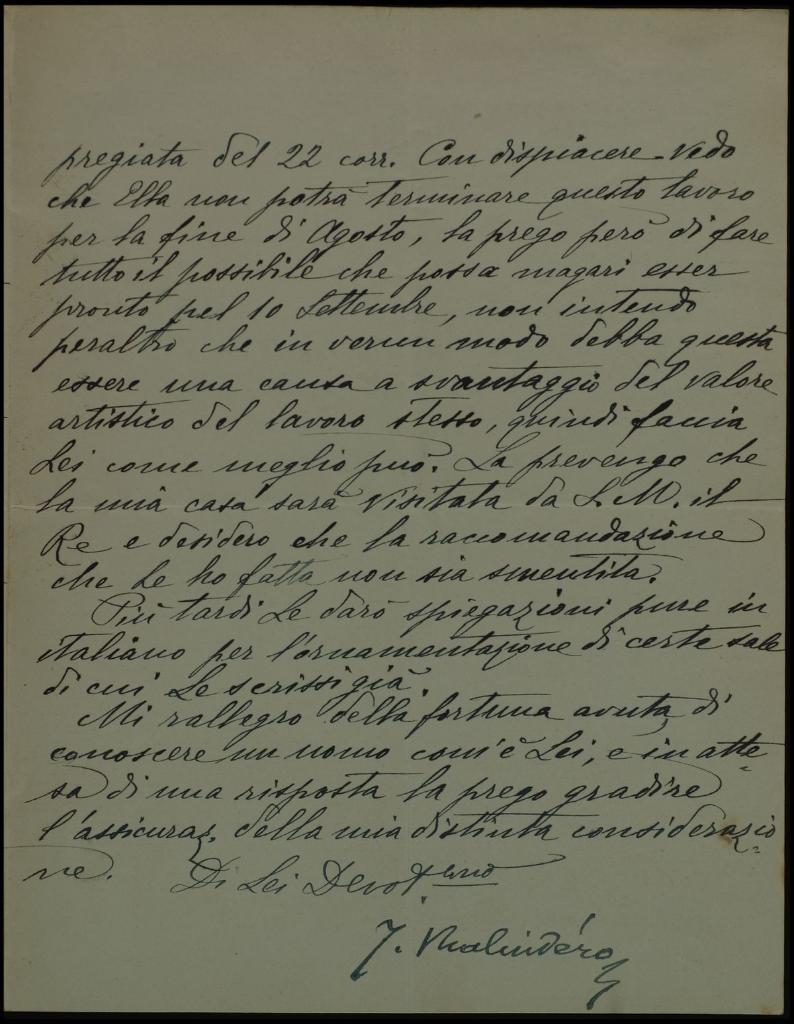 pregiata del 22 corr. Con dispiacere vedo
che Ella non potrà terminare questo lavoro
per la fine di Agosto, la prego però di fare
tutto il possibile che possa magari esser
pronto pel 10 Settembre, non intendo
peraltro che in verun modo debba questa
essere una causa a svantaggio del valore
artistico del lavoro stesso, quindi faccia
Lei come meglio può. La prevengo che
la mia casa sarà visitata da S. M. il
Re e desidero che la raccomandazione
che Le ho fatta non sia smentita.
Più tardi Le darò spiegazioni pure in
italiano per l'ornamentazione di certe sale
di cui Le scrissi già.
Mi rallegro della fortuna avuta di
conoscere un uomo com'è Lei, e in atte=
sa di una risposta la prego gradire
l'assicuraz. della mia distinta considerazio=
ne. Di Lei Devot.emo